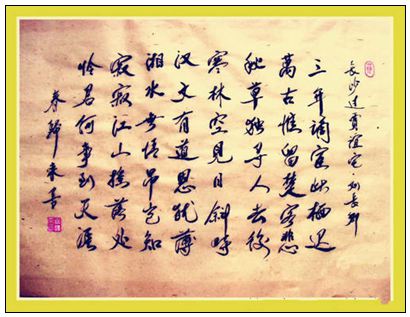 長沙过賈誼宅·刘長卿
三年谪宦此栖迟
萬古惟留楚客悲
秋草独寻人去後
寒林空見日斜时
汉文有道恩犹薄
湘水无情吊岂知
寂寂江山摇落处
怜君何事到天涯
春歸来书